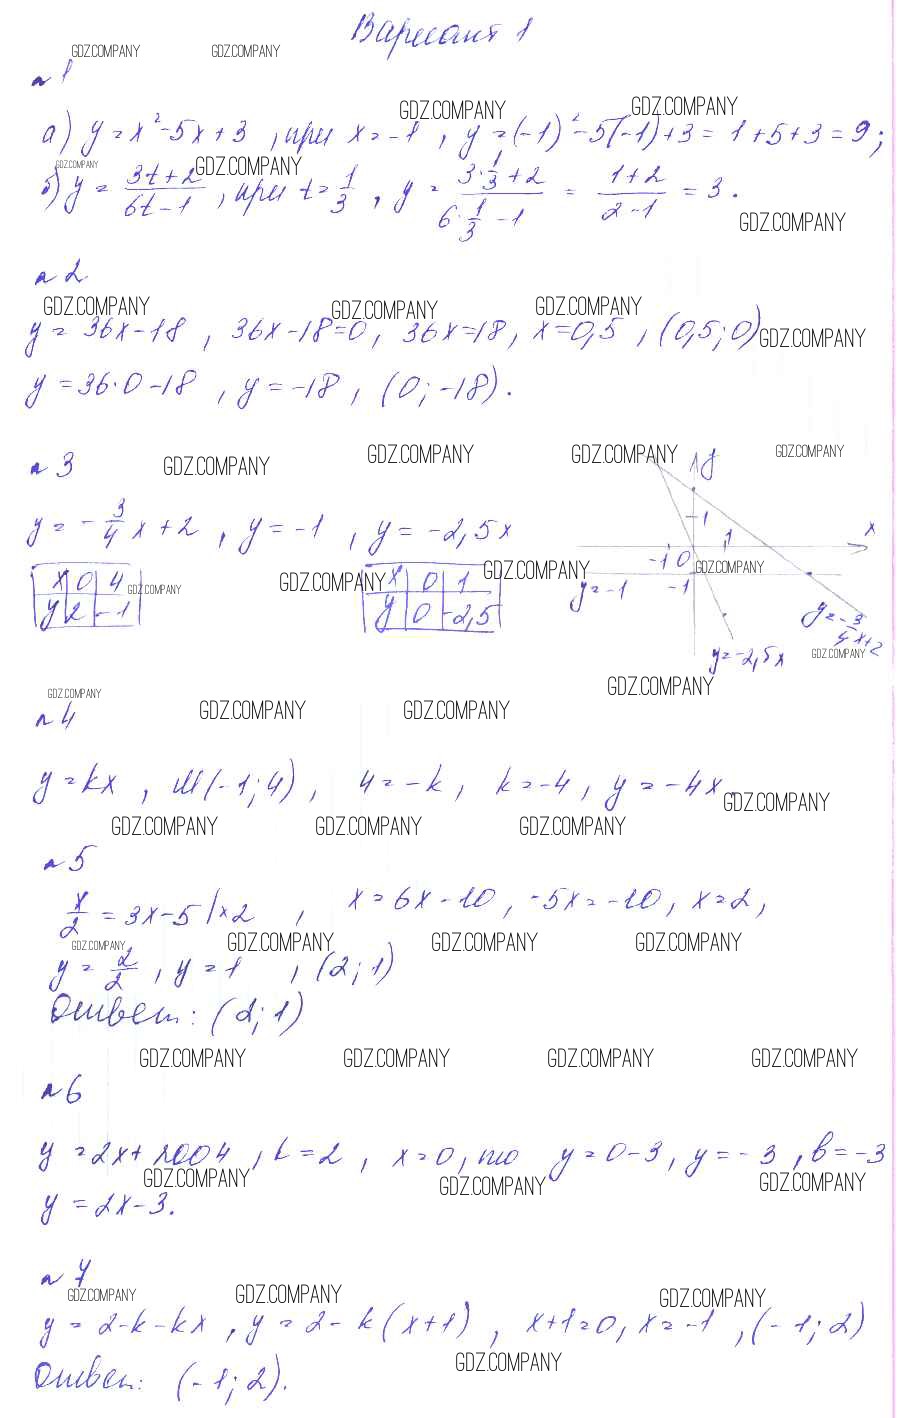 Вариант 1
GDZ.COMPANY GDZ.COMPANY
n1
GDZ.COMPANY GDZ.COMPANY
а) y = x²-5x+3 , при x=-1 , y=(-1)²-5(-1)+3 = 1+5+3 = 9;
GDZ.COMPANY GDZ.COMPANY
б) y = (3t+2)/(6t-1) , при t=1/3 , y = (3·1/3+2)/(6·1/3-1) = (1+2)/(2-1) = 3.
GDZ.COMPANY
n2
GDZ.COMPANY GDZ.COMPANY GDZ.COMPANY
y = 36x-18 , 36x-18=0, 36x=18, x=0,5 , (0,5;0)
GDZ.COMPANY
y = 36·0-18 , y = -18 , (0;-18).
n3 GDZ.COMPANY GDZ.COMPANY GDZ.COMPANY GDZ.COMPANY
y = -3/4x+2 , y = -1 , y = -2,5x
x 0 4
y 2 -1
GDZ.COMPANY GDZ.COMPANY GDZ.COMPANY
x 0 1
y 0 -2,5
y
1
x
1
-1 0
GDZ.COMPANY
y=-1 -1
y=-3/4x+2
y=-2,5x
GDZ.COMPANY
GDZ.COMPANY
GDZ.COMPANY
n4 GDZ.COMPANY GDZ.COMPANY
y = kx , М(-1;4) , 4 = -k , k = -4 , y = -4x.
GDZ.COMPANY
GDZ.COMPANY GDZ.COMPANY GDZ.COMPANY
n5
x/2 = 3x-5 |×2 , x = 6x-10 , -5x = -10 , x=2,
GDZ.COMPANY GDZ.COMPANY GDZ.COMPANY GDZ.COMPANY
y = 2/2 , y = 1 , (2;1)
Ответ: (2;1)
GDZ.COMPANY GDZ.COMPANY GDZ.COMPANY GDZ.COMPANY
n6
y = 2x+2004 , k=2 , x=0, то y=0-3, y=-3 , b=-3
GDZ.COMPANY GDZ.COMPANY GDZ.COMPANY
y = 2x-3.
n7
GDZ.COMPANY GDZ.COMPANY GDZ.COMPANY
y = 2-k-kx , y = 2-k(x+1) , x+1=0, x=-1 , (-1;2)
GDZ.COMPANY
Ответ: (-1;2).